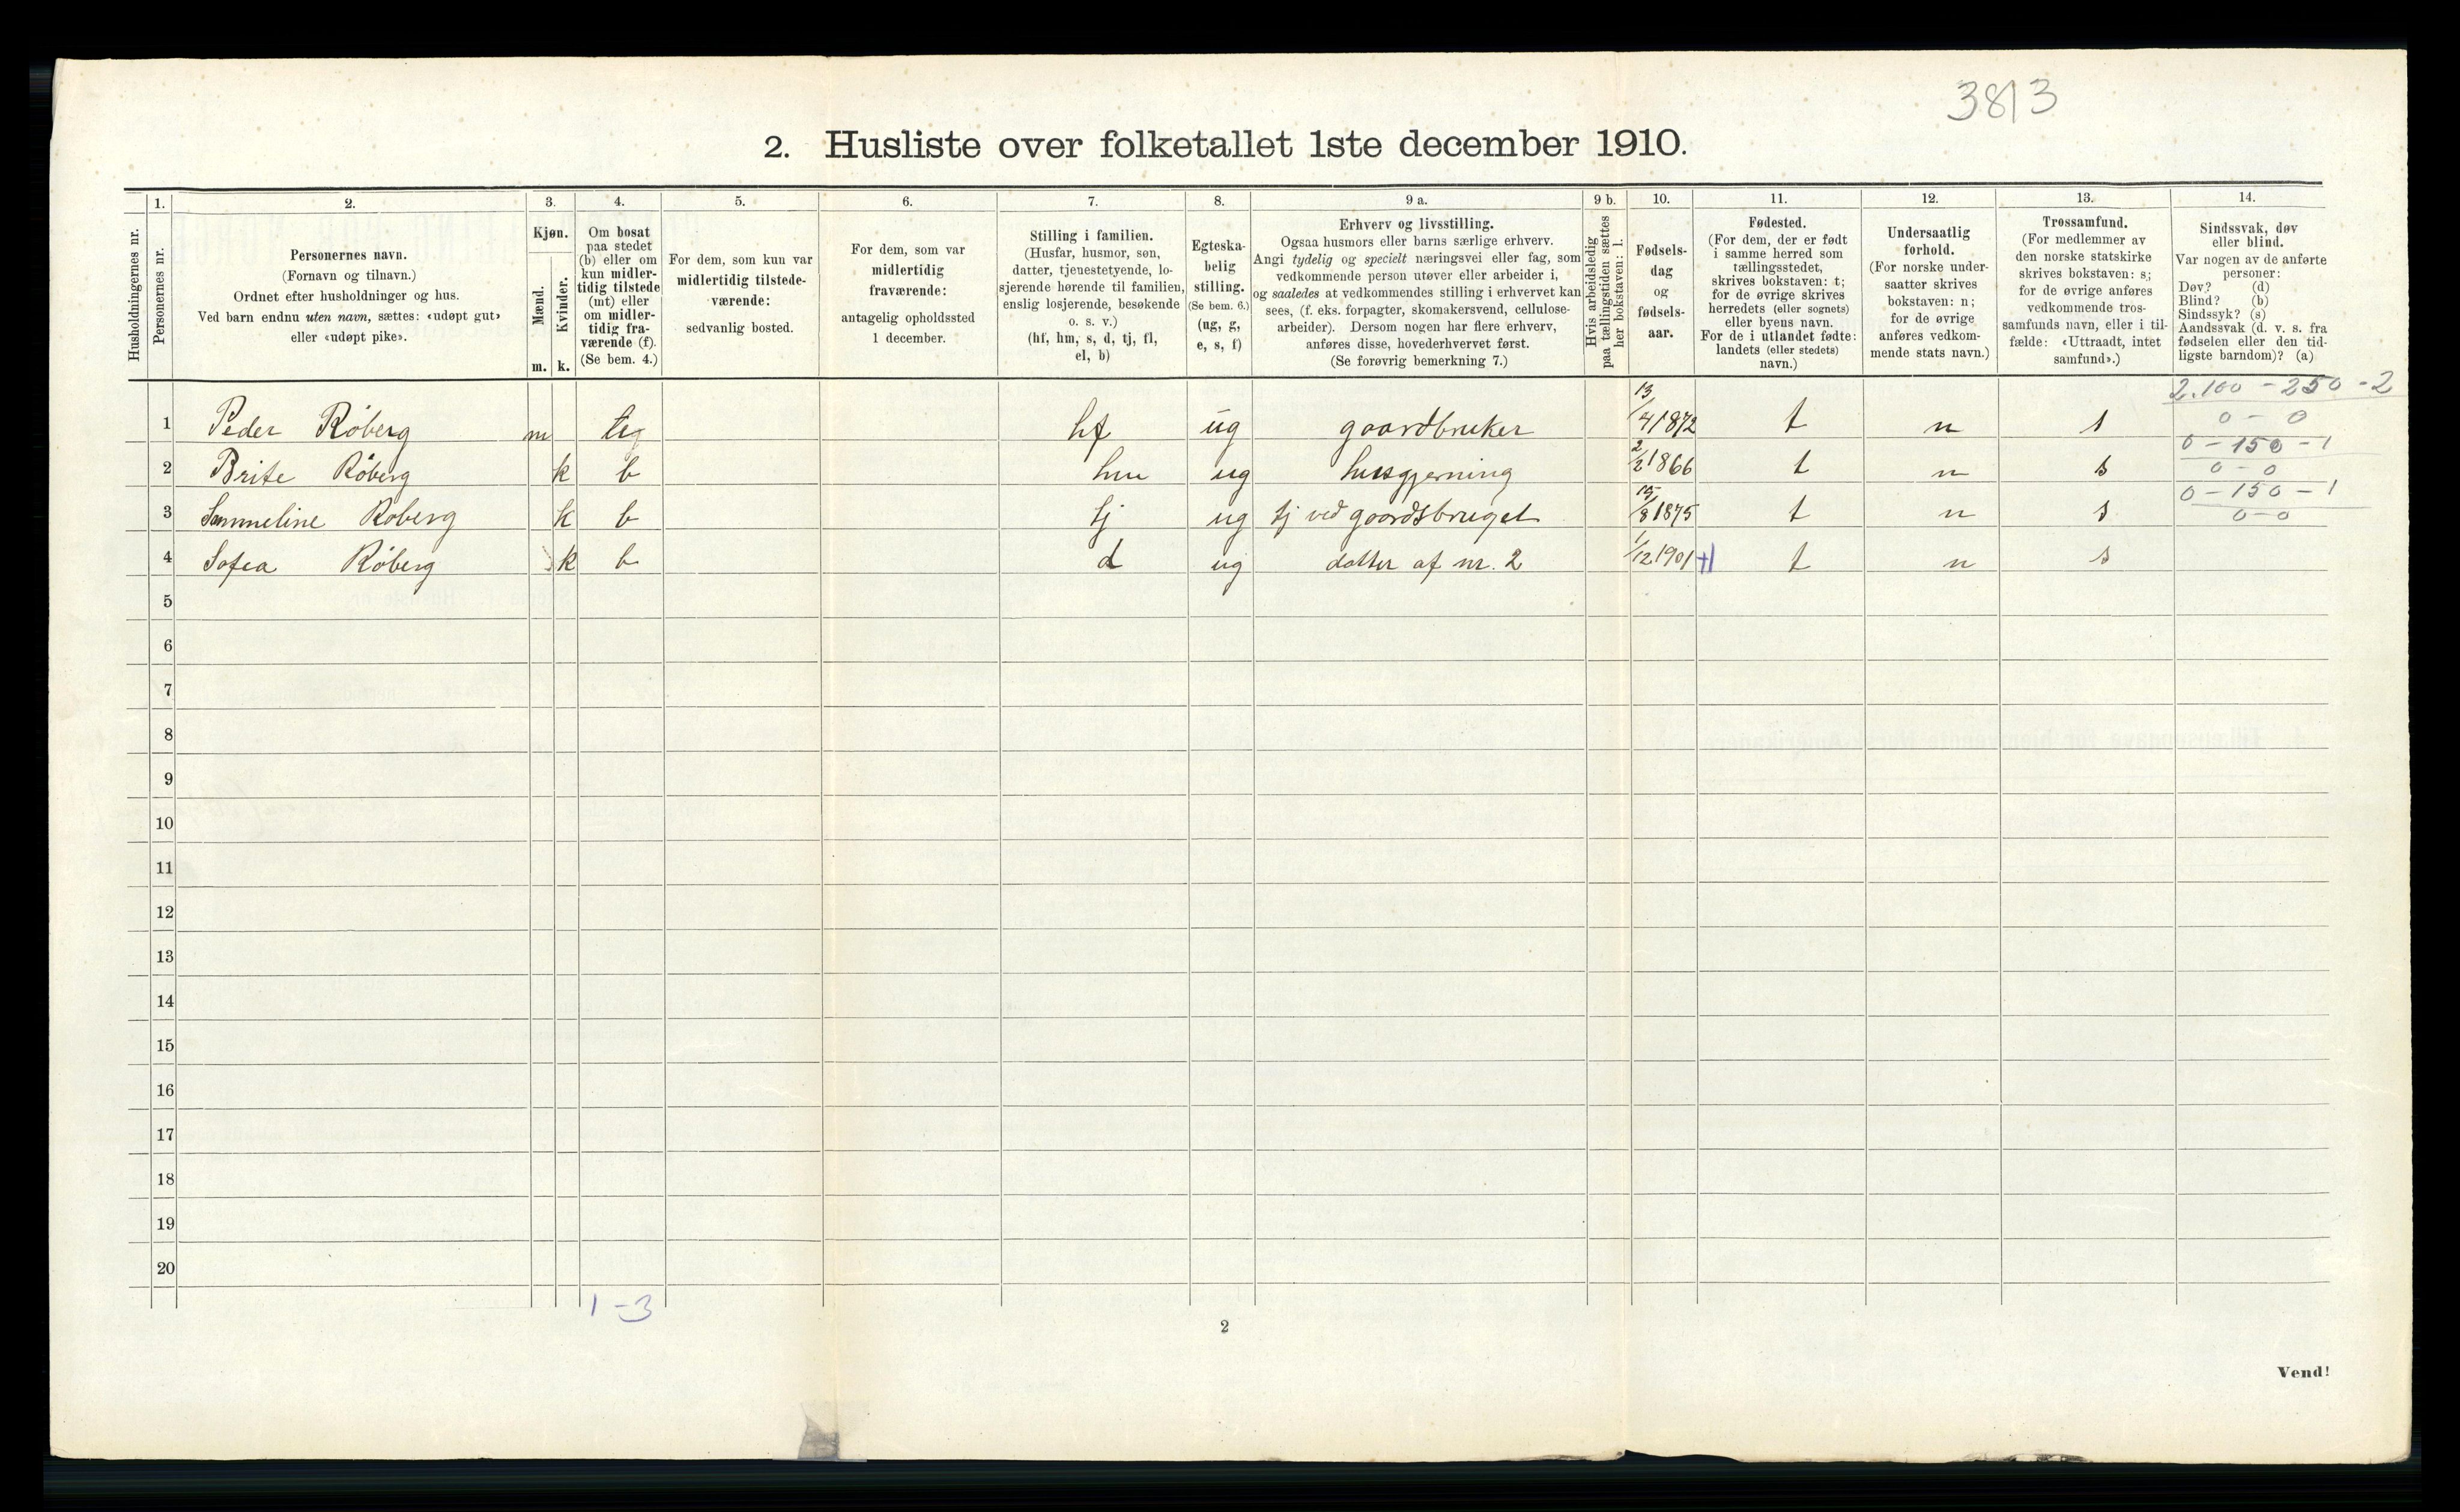 3813
2. Husliste over folketallet 1ste december 1910.
Husholdningernes nr.
1.
Personernes nr.
2.
Personernes navn.
(Fornavn og tilnavn.)
Ordnet efter husholdninger og hus.
Ved barn endnu uten navn, sættes: «udøpt gut»
eller «udøpt pike».
3.
Kjøn.
Mænd.
Kvinder.
m. k.
4.
Om bosat
paa stedet
(b) eller om
kun midler-
tidig tilstede
(mt) eller
om midler-
tidig fra-
værende (f).
(Se bem. 4.)
5.
For dem, som kun var
midlertidig tilstede-
værende:
sedvanlig bosted.
6.
For dem, som var
midlertidig
fraværende:
antagelig opholdssted
1 december.
7.
Stilling i familien.
(Husfar, husmor, søn,
datter, tjenestetyende, lo-
sjerende hørende til familien,
enslig losjerende, besøkende
o. s. v.)
(hf, hm, s, d, tj, fl,
el, b)
8.
Egteska-
belig
stilling.
(Se bem. 6.)
(ug, g,
e, s, f)
9 a.
Erhverv og livsstilling.
Ogsaa husmors eller barns særlige erhverv.
Angi tydelig og specielt næringsvei eller fag, som
vedkommende person utøver eller arbeider i,
og saaledes at vedkommendes stilling i erhvervet kan
sees, (f. eks. forpagter, skomakersvend, cellulose-
arbeider). Dersom nogen har flere erhverv,
anføres disse, hovederhvervet først.
(Se forøvrig bemerkning 7.)
9 b.
Hvis arbeidsledig
paa tællingstiden sættes
her bokstaven: l.
10.
Fødsels-
dag
og
fødsels-
aar.
11.
Fødested.
(For dem, der er født
i samme herred som
tællingsstedet,
skrives bokstaven: t;
for de øvrige skrives
herredets (eller sognets)
eller byens navn.
For de i utlandet fødte:
landets (eller stedets)
navn.)
12.
Undersaatlig
forhold.
(For norske under-
saatter skrives
bokstaven: n;
for de øvrige
anføres vedkom-
mende stats navn.)
13.
Trossamfund.
(For medlemmer av
den norske statskirke
skrives bokstaven: s;
for de øvrige anføres
vedkommende tros-
samfunds navn, eller i til-
fælde: «Uttraadt, intet
samfund».)
14.
Sindssvak, døv
eller blind.
Var nogen av de anførte
personer:
Døv? (d)
Blind? (b)
Sindssyk? (s)
Aandssvak (d. v. s. fra
fødselen eller den tid-
ligste barndom)? (a)
2.100 - 250 - 2
1 Peder Röberg m hf ug gaardbruker 13/4 1872 t n s 0 - 0
0 - 150 - 1
2 Brite Röberg k b hm ug husgjerning 2/2 1866 t n s 0 - 0
0 - 150 - 1
3 Sammeline Röberg k b tj ug tj ved gaardsbruget 15/8 1875 t n s 0 - 0
4 Sofea Röberg k b d ug datter af nr. 2 1/12 1901 t n s
5
6
7
8
9
10
11
12
13
14
15
16
17
18
19
20
1 - 3
2
Vend!